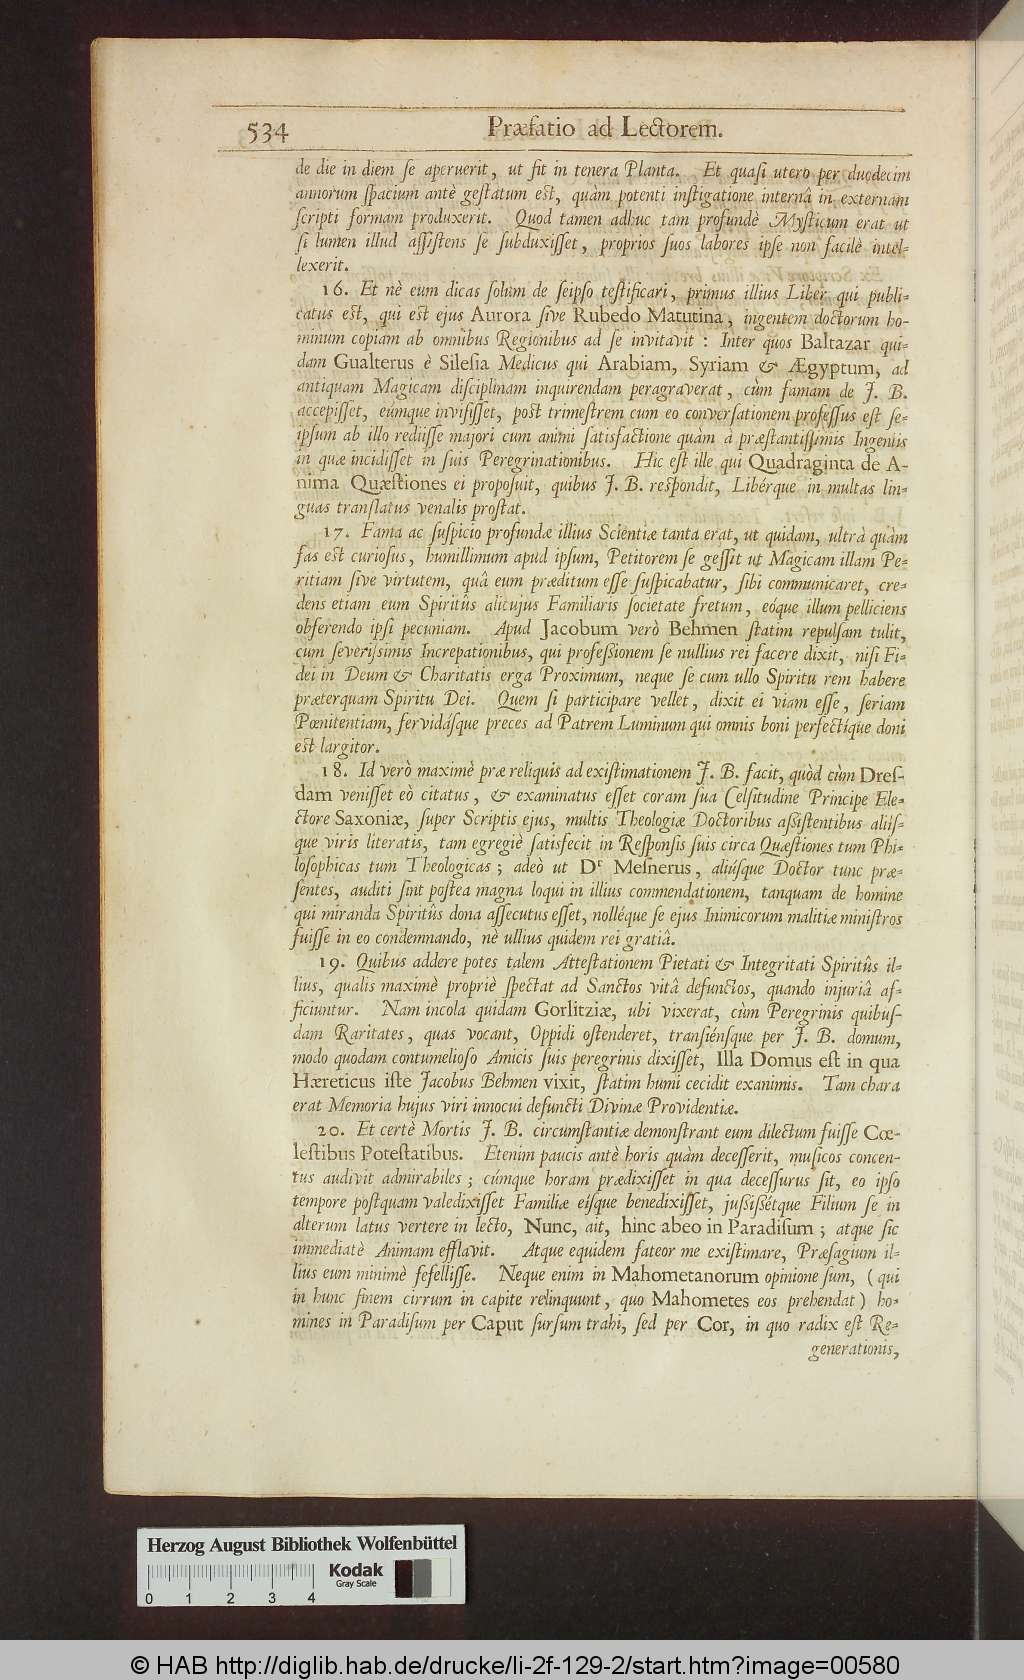 534 Præfatio ad Lectorem.
de die in diem ſe aperuerit, ut fit in tenera Planta. Et quaſi utero per duodecim
annorum ſpacium antè geſtatum eſt, quàm potenti inſtigatione internâ in externam
ſcripti formam produxerit. Quod tamen adhuc tam profundè Myſticum erat ut
ſi lumen illud aſſiſtens ſe ſubduxiſſet, proprios ſuos labores ipſe non facilè intel-
lexerit.
16. Et nè eum dicas ſolùm de ſeipſo teſtificari, primus illius Liber qui publi-
catus eſt, qui eſt ejus Aurora ſive Rubedo Matutina, ingentem doctorum ho-
minum copiam ab omnibus Regionibus ad ſe invitavit: Inter quos Baltazar qui-
dam Gualterus è Sileſia Medicus qui Arabiam, Syriam & Ægyptum, ad
antiquam Magicam diſciplinam inquirendam peragraverat, cùm famam de J. B.
accepiſſet, eùmque inviſiſſet, poſt trimeſtrem cum eo converſationem profeſſus eſt ſe-
ipſum ab illo rediiſſe majori cum animi ſatisfactione quàm à præſtantiſſimis Ingeniis
in quæ incidiſſet in ſuis Peregrinationibus. Hic eſt ille qui Quadraginta de A-
nima Quæſtiones ei propoſuit, quibus J. B. reſpondit, Libérque in multas lin-
guas tranſlatus venalis proſtat.
17. Fama ac ſuſpicio profundæ illius Scientiæ tanta erat, ut quidam, ultrà quàm
fas eſt curioſus, humillimum apud ipſum, Petitorem ſe geſſit ut Magicam illam Pe-
ritiam ſive virtutem, quâ eum præditum eſſe ſuſpicabatur, ſibi communicaret, cre-
dens etiam eum Spiritûs alicujus Familiaris ſocietate fretum, eóque illum pelliciens
obferendo ipſi pecuniam. Apud Jacobum verò Behmen ſtatim repulſam tulit,
cum ſeveriſsimis Increpationibus, qui profeſsionem ſe nullius rei facere dixit, niſi Fi-
dei in Deum & Charitatis erga Proximum, neque ſe cum ullo Spiritu rem habere
præterquam Spiritu Dei. Quem ſi participare vellet, dixit ei viam eſſe, ſeriam
Pœnitentiam, fervidáſque preces ad Patrem Luminum qui omnis boni perfectíque doni
eſt largitor.
18. Id verò maximè præ reliquis ad exiſtimationem J. B. facit, quòd cùm Dreſ-
dam veniſſet eò citatus, & examinatus eſſet coram ſua Celſitudine Principe Ele-
ctore Saxoniæ, ſuper Scriptis ejus, multis Theologiæ Doctoribus aſsiſtentibus aliiſ-
que viris literatis, tam egregiè ſatisfecit in Reſponſis ſuis circa Quæſtiones tum Phi-
loſophicas tum Theologicas; adeò ut Dr Meſnerus, aliúſque Doctor tunc præ-
ſentes, auditi ſint poſtea magna loqui in illius commendationem, tanquam de homine
qui miranda Spiritûs dona aſſecutus eſſet, nolléque ſe ejus Inimicorum malitiæ miniſtros
fuiſſe in eo condemnando, nè ullius quidem rei gratiâ.
19. Quibus addere potes talem Atteſtationem Pietati & Integritati Spiritûs il-
lius, qualis maximè propriè ſpectat ad Sanctos vitâ defunctos, quando injuriâ af-
ficiuntur. Nam incola quidam Gorlitziæ, ubi vixerat, cùm Peregrinis quibuſ-
dam Raritates, quas vocant, Oppidi oſtenderet, tranſiénſque per J. B. domum,
modo quodam contumelioſo Amicis ſuis peregrinis dixiſſet, Illa Domus eſt in qua
Hæreticus iſte Jacobus Behmen vixit, ſtatim humi cecidit exanimis. Tam chara
erat Memoria hujus viri innocui defuncti Divinæ Providentiæ.
20. Et certè Mortis J. B. circumſtantiæ demonſtrant eum dilectum fuiſſe Cœ-
leſtibus Poteſtatibus. Etenim paucis antè horis quàm deceſſerit, muſicos concen-
tus audivit admirabiles; cúmque horam prædixiſſet in qua deceſſurus ſit, eo ipſo
tempore poſtquam valedixiſſet Familiæ eíſque benedixiſſet, juſsiſſétque Filium ſe in
alterum latus vertere in lecto, Nunc, ait, hinc abeo in Paradiſum; atque ſic
immediatè Animam efflavit. Atque equidem fateor me exiſtimare, Præſagium il-
lius eum minimè fefelliſſe. Neque enim in Mahometanorum opinione ſum, (qui
in hunc finem cirrum in capite relinquunt, quo Mahometes eos prehendat) ho-
mines in Paradiſum per Caput ſurſum trahi, ſed per Cor, in quo radix eſt Re-
generationis,
Herzog August Bibliothek Wolfenbüttel
Kodak
Gray Scale
0 1 2 3 4
© HAB http://diglib.hab.de/drucke/li-2f-129-2/start.htm?image=00580